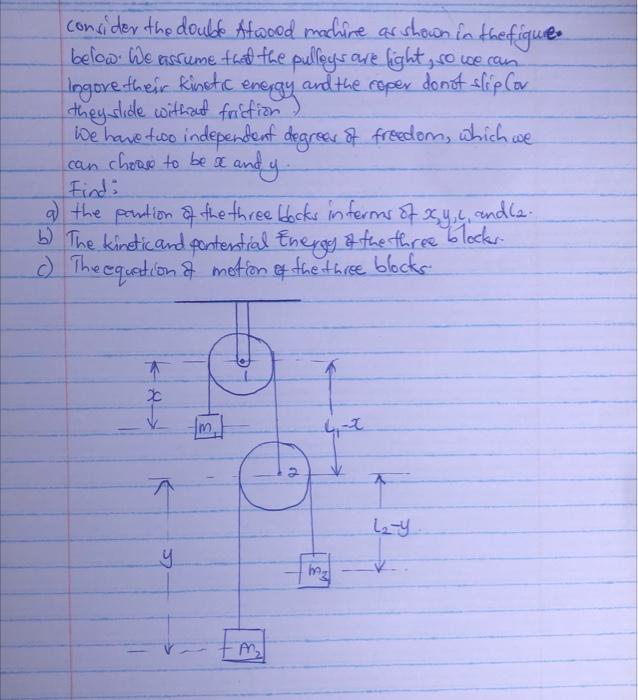 consider the double Atwood machine as shown in the figure
below. We assume that the pulleys are light, so we can
Ingore their kinetic energy and the roper do not slip (or
they slide without friction)
We have two independent degrees of freedom, which we
can choose to be x and y.
Find:
a) the portion of the three blocks in terms of x, y, L, and L2.
b) The kinetic and pontential Energy of the three blocks.
c) The equation of motion of the three blocks.
1
x
m1
L1-x
2
L2-y
y
m3
m2